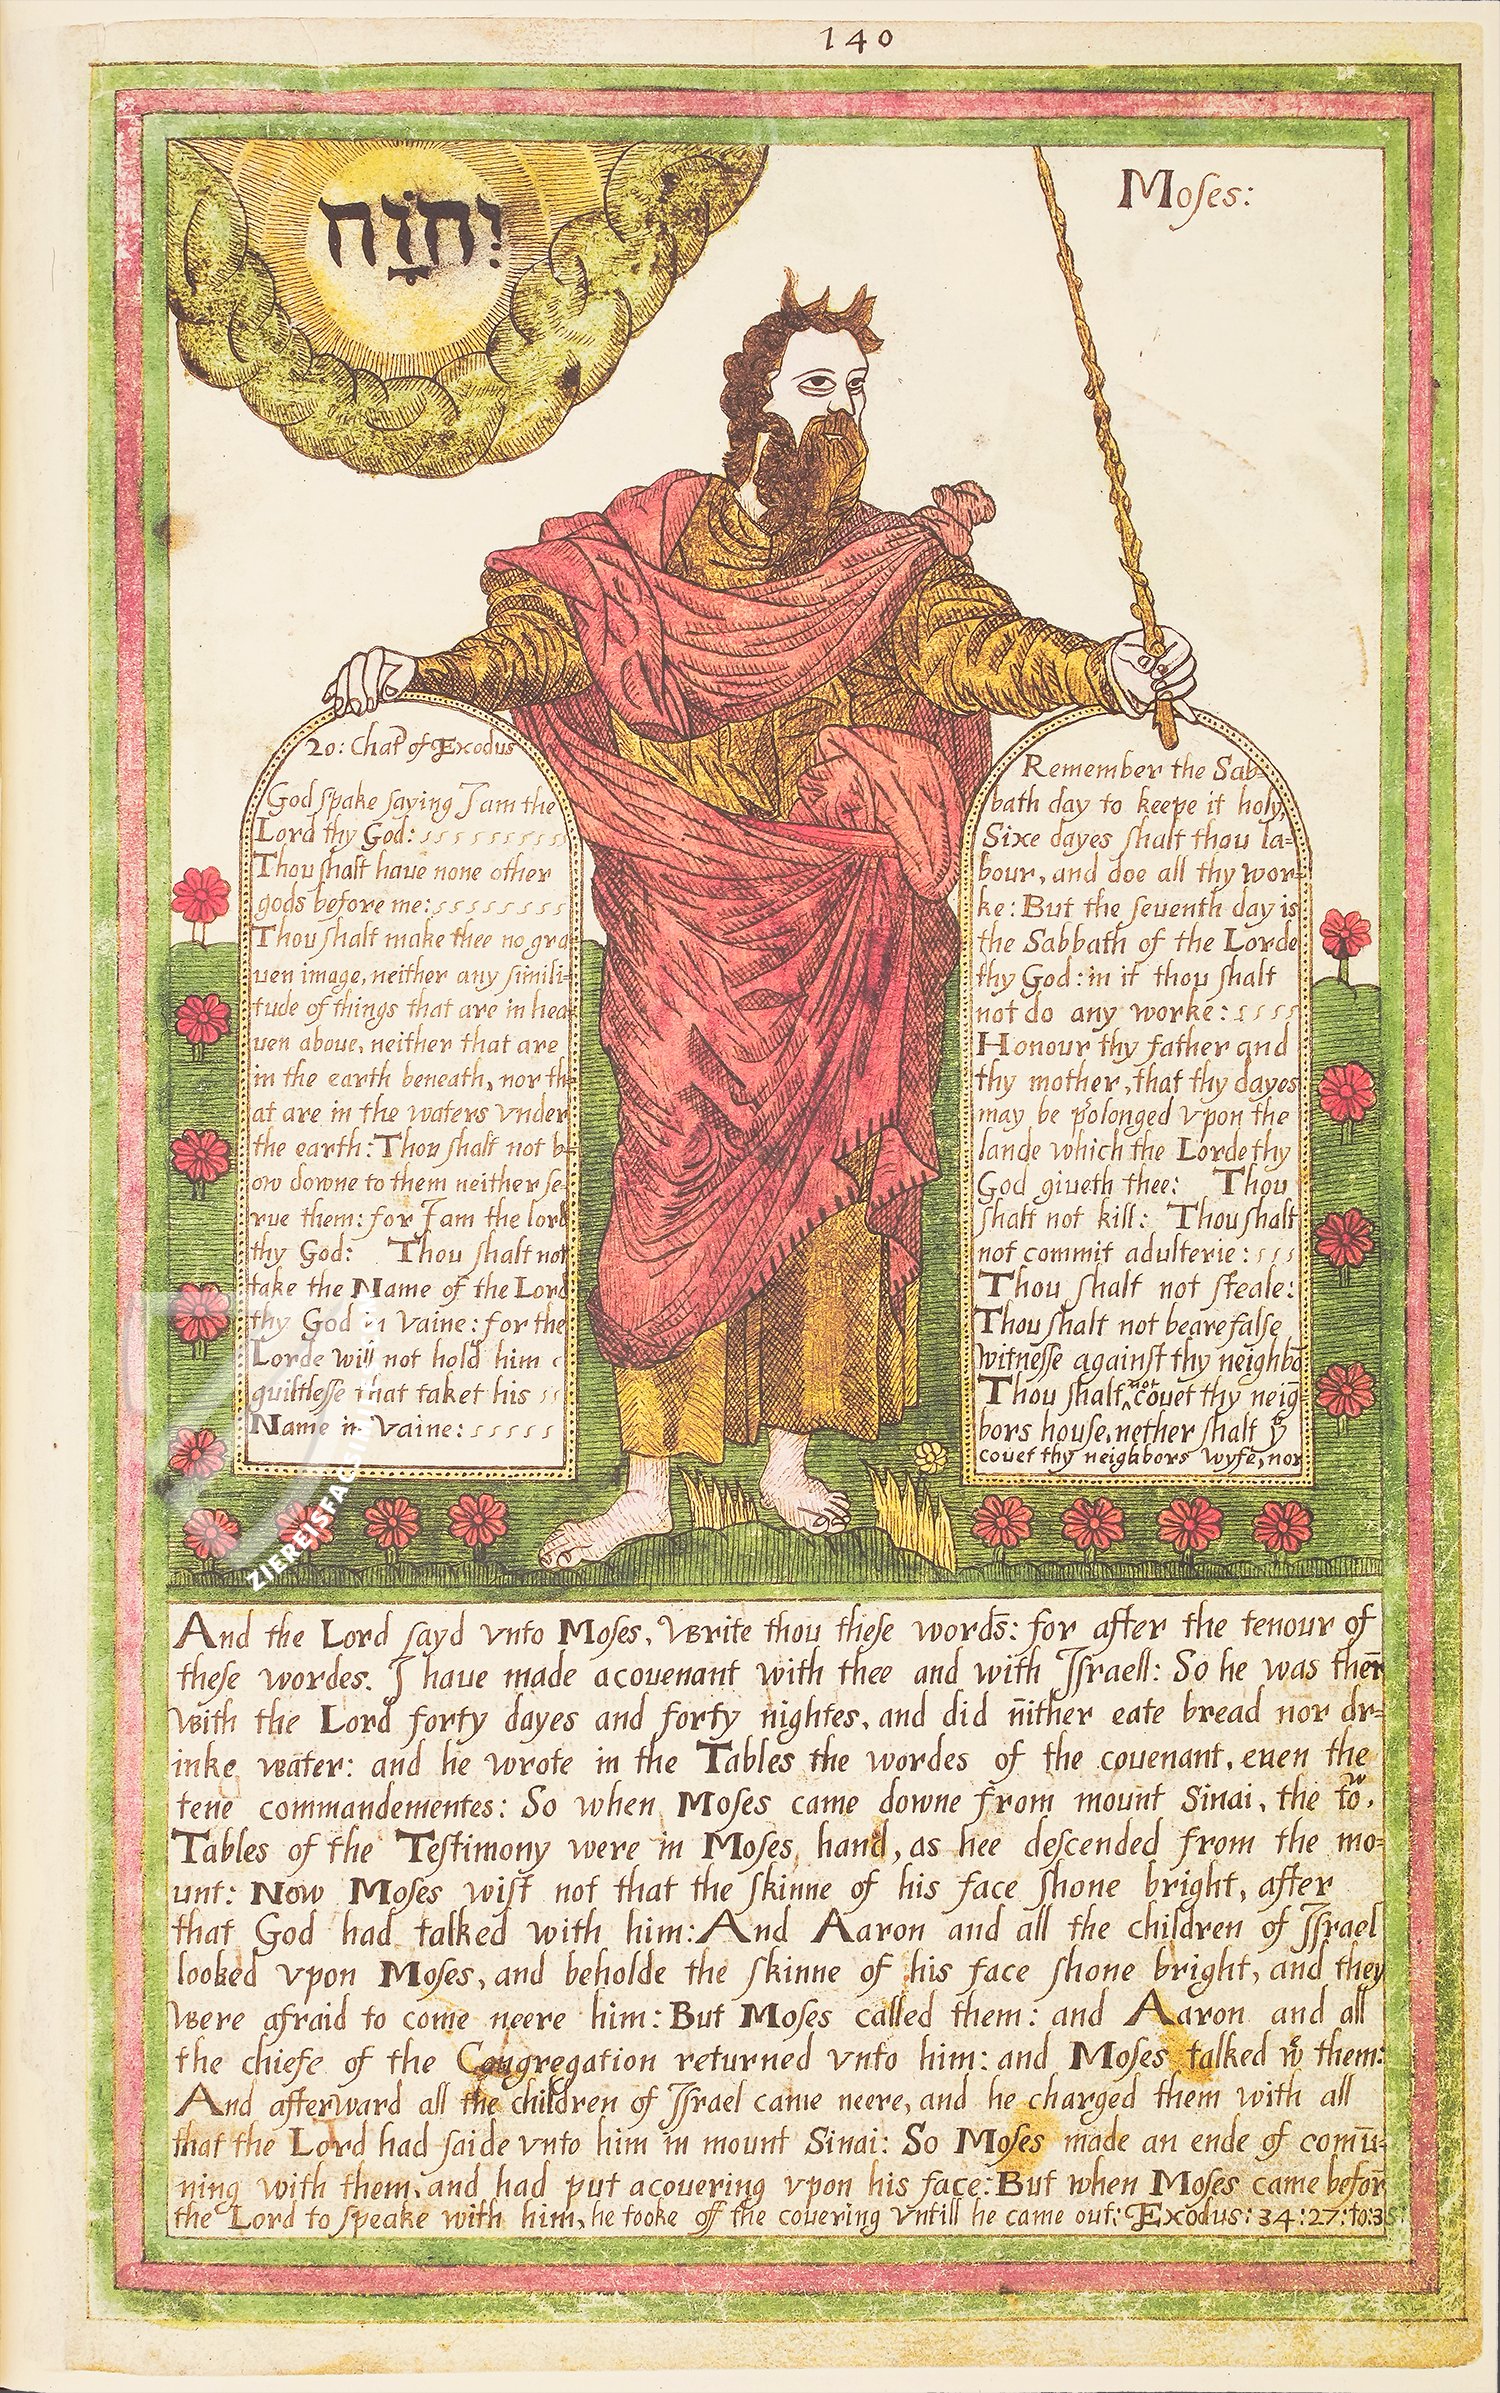 140
יְהֹוָה
Moſes:
20: Chap of Exodus
God ſpake ſaying I am the
Lord thy God: s s s s s s s s s
Thou ſhalt haue none other
gods before me: s s s s s s s s
Thou ſhalt make thee no gra
uen image, neither any ſimili=
tude of things that are in hea
uen aboue, neither that are
in the earth beneath, nor th
at are in the waters vnder
the earth: Thou ſhalt not b=
ow downe to them neither ſe=
rue them: for I am the lord
thy God: Thou ſhalt not
take the Name of the Lord
thy God in Vaine: for the
Lorde will not hold him
guiltleſſe that taket his s s
Name in Vaine: s s s s s
Remember the Sab=
bath day to keepe it holy,
Sixe dayes ſhalt thou la=
bour, and doe all thy wor=
ke: But the ſeuenth day is
the Sabbath of the Lorde
thy God: in it thou ſhalt
not do any worke: s s s s
Honour thy father and
thy mother, that thy dayes
may be p̲olonged vpon the
lande which the Lorde thy
God giueth thee: Thou
ſhalt not kill: Thou ſhalt
not commit adulterie: s s s
Thou ſhalt not ſteale:
Thou ſhalt not beare falſe
witneſſe againſt thy neighbō
Thou ſhalt ^not couet thy neig̅
bors houſe, nether ſhalt yu
couet thy neighbors wyfe, nor
And the Lord ſayd vnto Moſes, Write thou theſe words̄: for after the tenour of
theſe wordes. I haue made acouenant with thee and with Iſraell: So he was ther̄
with the Lord forty dayes and forty nightes, and did n̄ither eate bread nor dr=
inke water: and he wrote in the Tables the wordes of the couenant, euen the
tene commandementes: So when Moſes came downe from mount Sinai, the towͦ,
Tables of the Teſtimony were in Moſes hand, as hee deſcended from the mo=
unt: Now Moſes wiſt not that the ſkinne of his face ſhone bright, after
that God had talked with him: And Aaron and all the children of Iſrael
looked vpon Moſes, and beholde the ſkinne of his face ſhone bright, and they
were afraid to come neere him: But Moſes called them: and Aaron and all
the chiefe of the Congregation returned vnto him: and Moſes talked wͭ them:
And afterward all the children of Iſrael came neere, and he charged them with all
that the Lord had ſaide vnto him in mount Sinai: So Moſes made an ende of comū=
ning with them, and had put acouering vpon his face: But when Moſes came befor̄
the Lord to ſpeake with him, he tooke off the couering Vntill he came out: Exodus: 34: 27: to: 35:
ZIEREISFACSIMILE